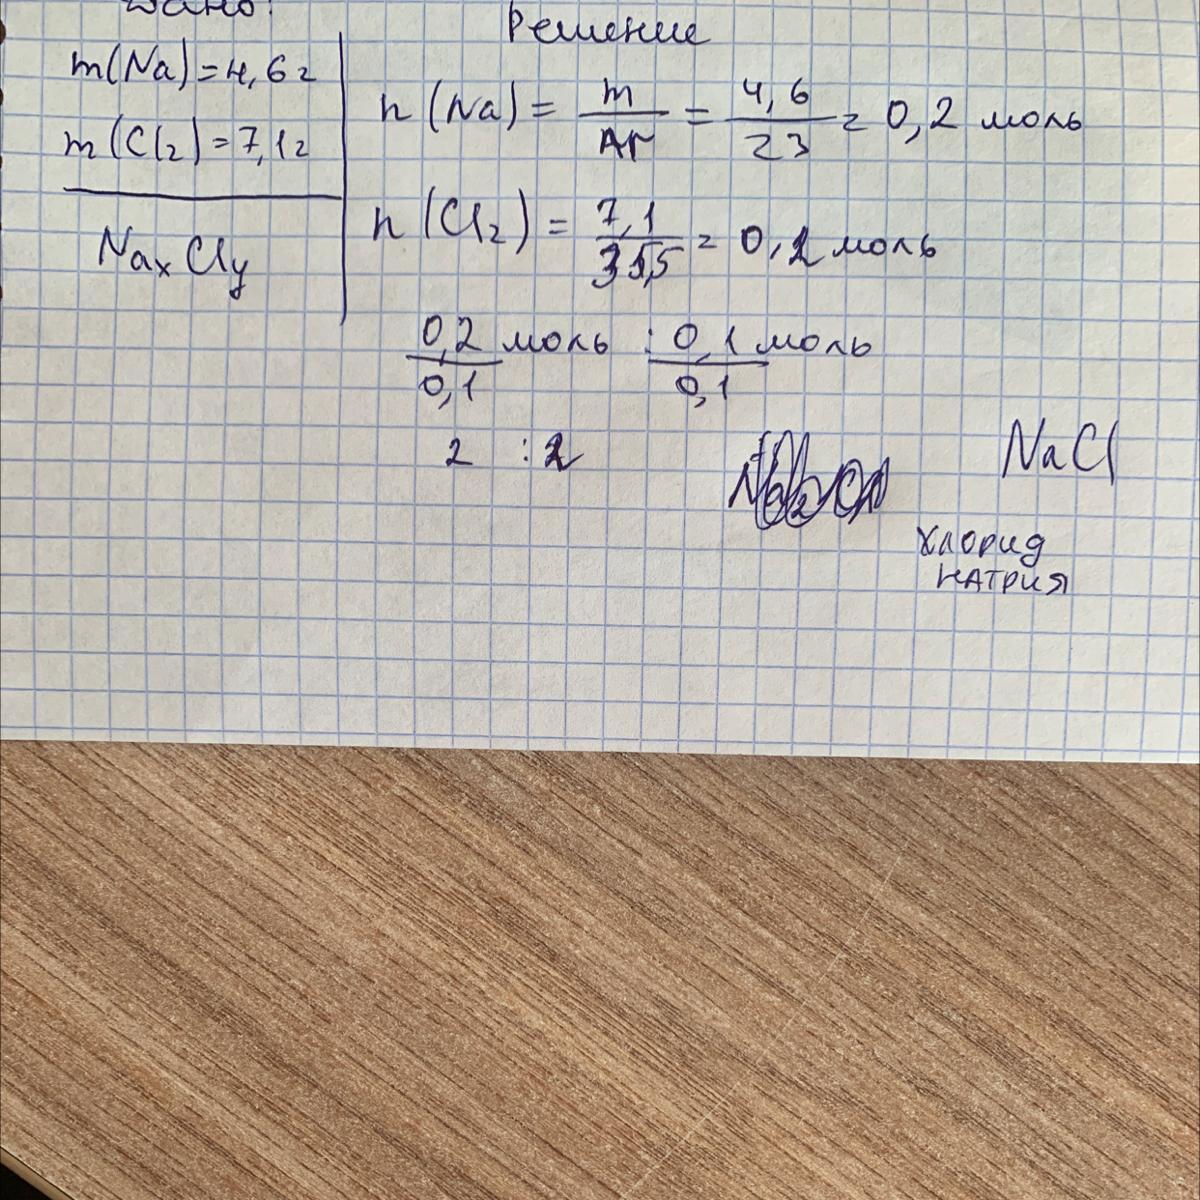 Дано:
m(Na)=4,6г
m(Cl₂)=7,1г
NaₓClᵧ
Решение
n(Na) = m/Ar = 4,6/23 = 0,2 моль
n(Cl₂) = 7,1/35,5 = 0,2 моль
0,2/0,1 моль : 0,1/0,1 моль
2 : 2
NaCl
хлорид
натрия